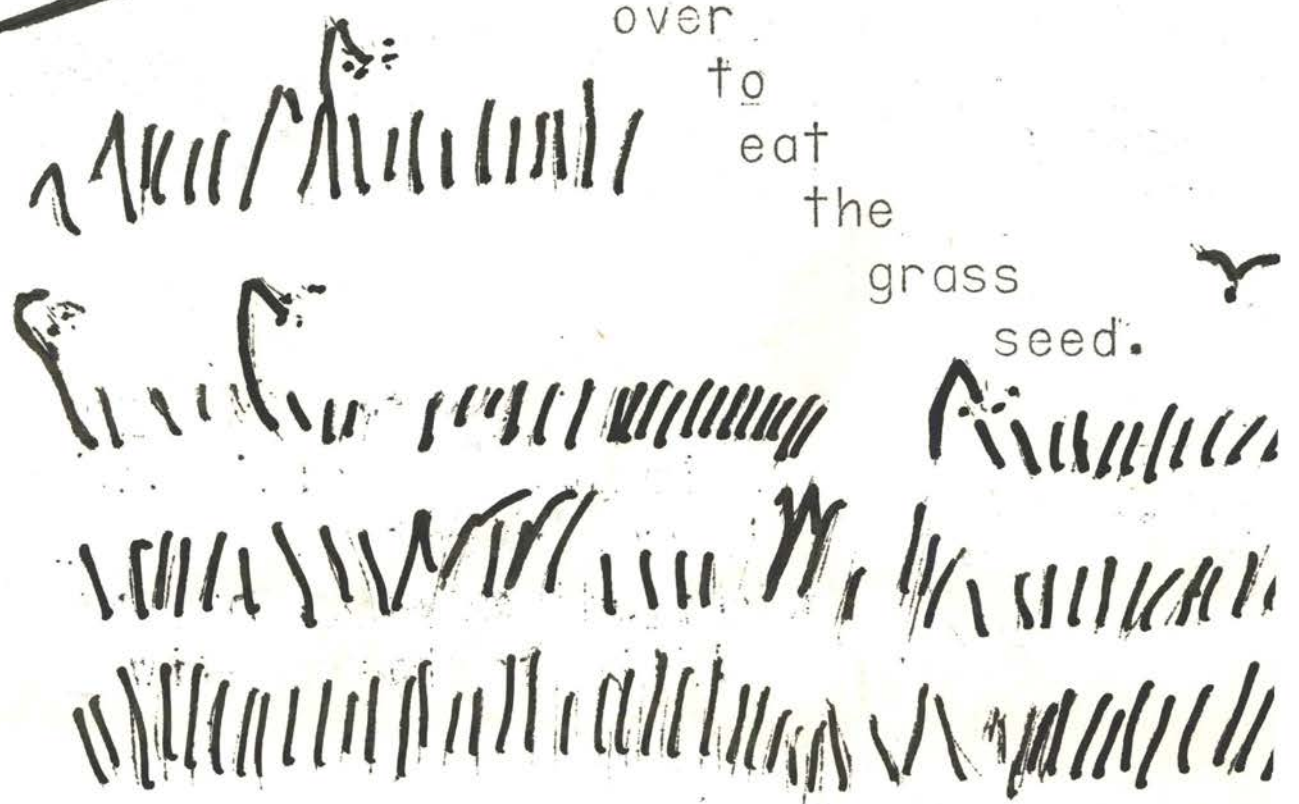 over
to
eat
the
grass
seed.